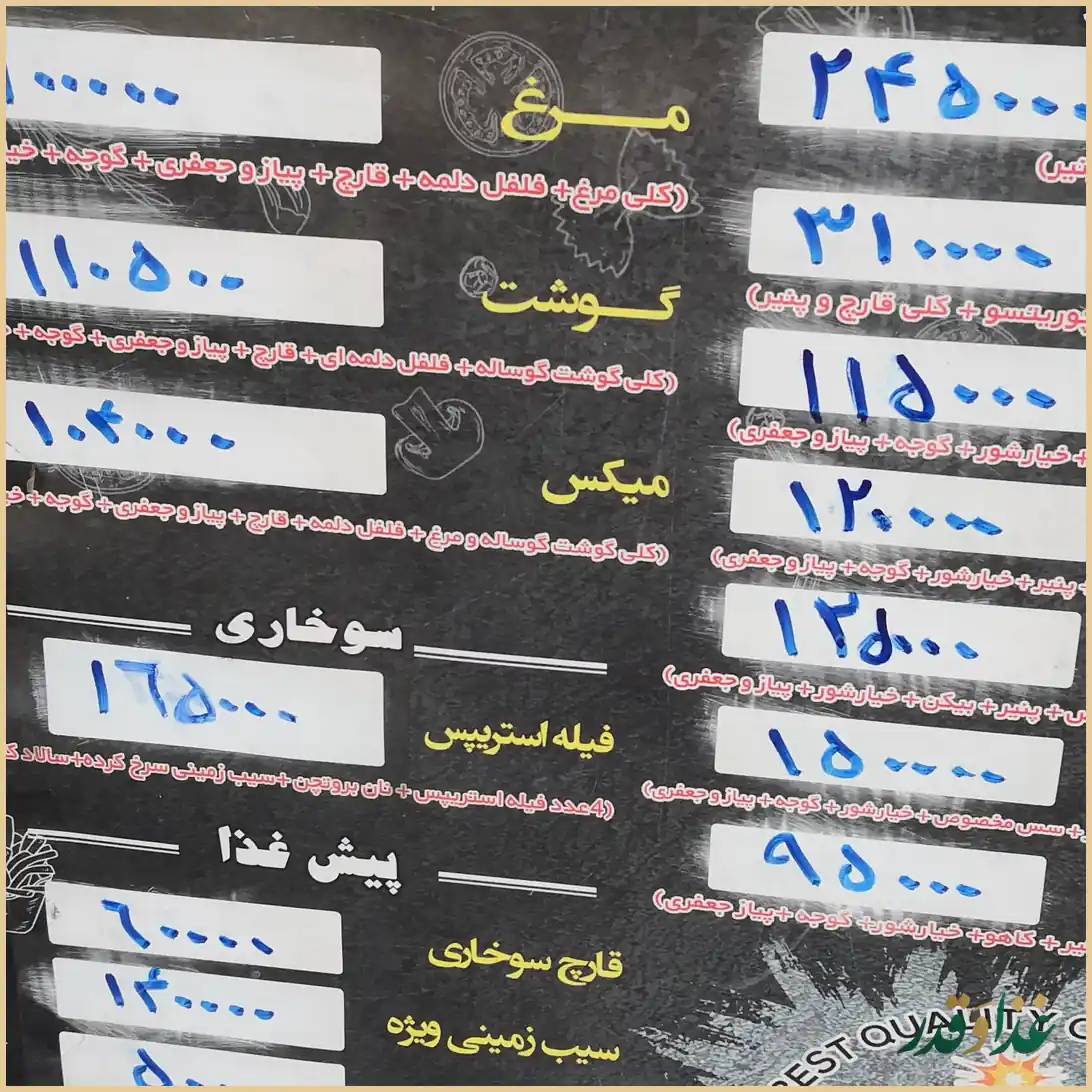 ۲۴۵۰۰۰
۳۱۰۰۰۰
+ کلی قارچ و پنیر)
۱۱۵۰۰۰
+ خیارشور + گوجه + پیاز و جعفری)
۱۲۰۰۰۰
+ پنیر + خیارشور + گوجه + پیاز و جعفری)
۱۳۵۰۰۰
+ پنیر + بیکن + خیارشور + پیاز و جعفری)
۱۵۰۰۰۰
+ سس مخصوص + خیارشور + گوجه + پیاز و جعفری)
۹۵۰۰۰
+ کاهو + خیارشور + گوجه + پیاز جعفری)
BEST QUALITY
مرغ
(کلی مرغ + فلفل دلمه + قارچ + پیاز و جعفری + گوجه +
گوشت ۱۱۰۵۰۰
(کلی گوشت گوساله + فلفل دلمه ای + قارچ + پیاز و جعفری + گوجه +
میکس ۱۰۴۰۰۰
(کلی گوشت گوساله و مرغ + فلفل دلمه + قارچ + پیاز و جعفری + گوجه +
سوخاری
فیله استریپس ۱۶۵۰۰۰
(4عدد فیله استریپس + نان بروتچن + سیب زمینی سرخ کرده + سالاد
پیش غذا
قارچ سوخاری ۶۰۰۰۰
سیب زمینی ویژه ۱۴۰۰۰۰
غذا و قدر